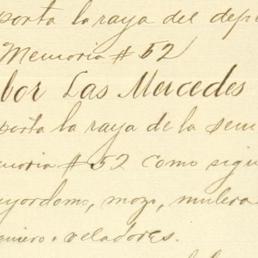 porta la raya del dep
Memoria # 52
bor Las Mercedes
porta la raya de la sem
moria # 52 como sigu
yordomo, mozo, mulera
quiero o veladores.